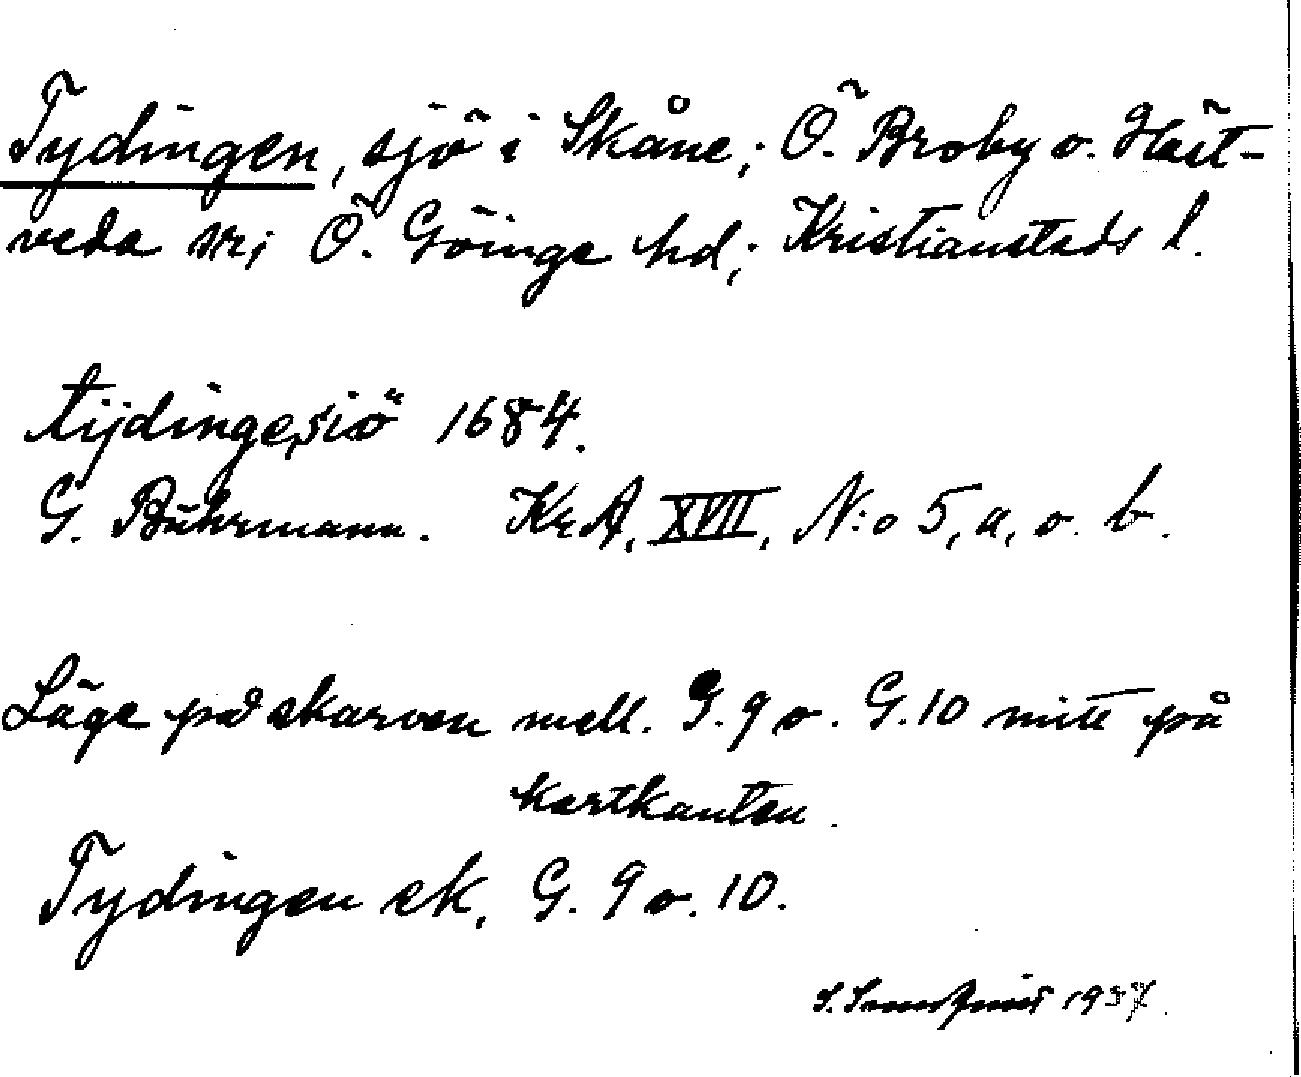 Tydingen, sjö i Skåne; Ö. Broby o. Häst-
veda sn; Ö. Göinge hd; Kristianstads l.
tijdinge siö 1684.
G. Buhrmann. KrA, XVII, N:o 5, a, o. b.
Läge på skarven mell. G. 9 o. G. 10 mitt på
kartkanten.
Tydingen ek. G. 9 o. 10.
1937.